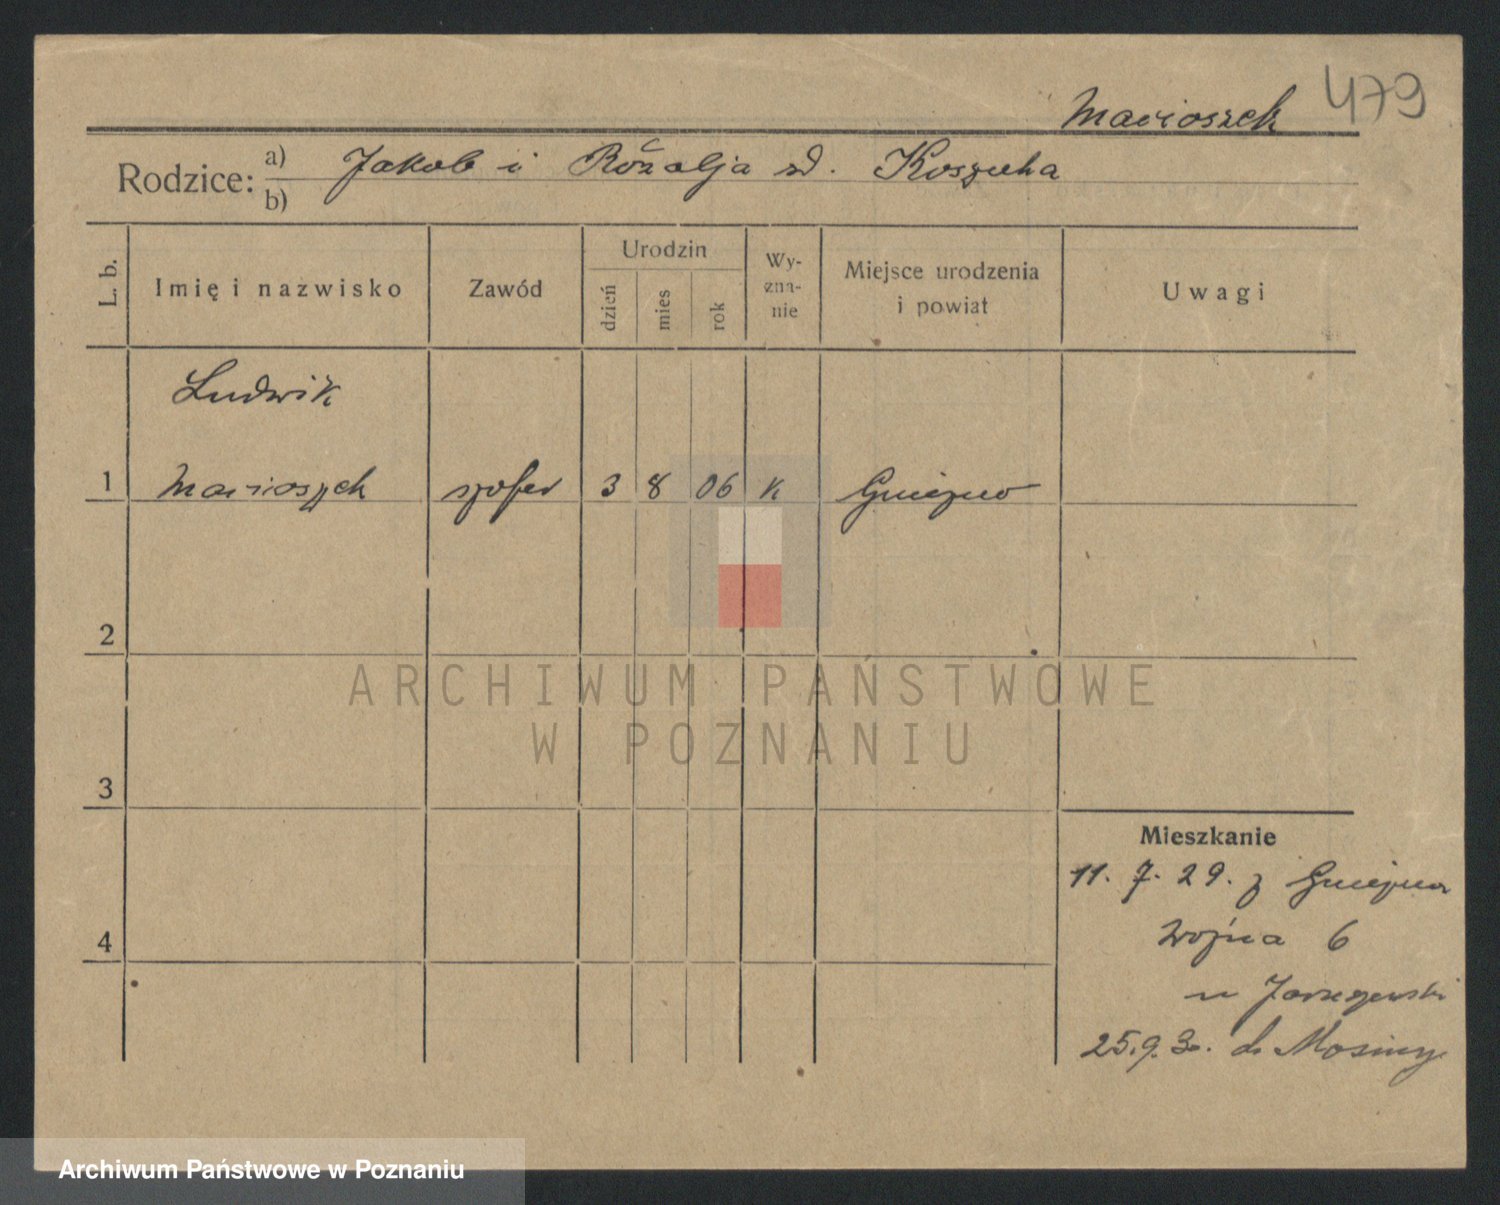 479
Macioszek
Rodzice: a) Jakob i Różalja zd. Koszuha
b)
L. b.
Imię i nazwisko
Zawód
Urodzin
dzień
mies
rok
Wy-
zna-
nie
Miejsce urodzenia
i powiat
Uwagi
Ludwik
1 Macioszek szofer 3 8 06 k Gniezno
2
3
4
Mieszkanie
11. 7. 29. z Gniezna
6
u
25.9.30. do Mosiny
ARCHIWUM PAŃSTWOWE
W POZNANIU
Archiwum Państwowe w Poznaniu